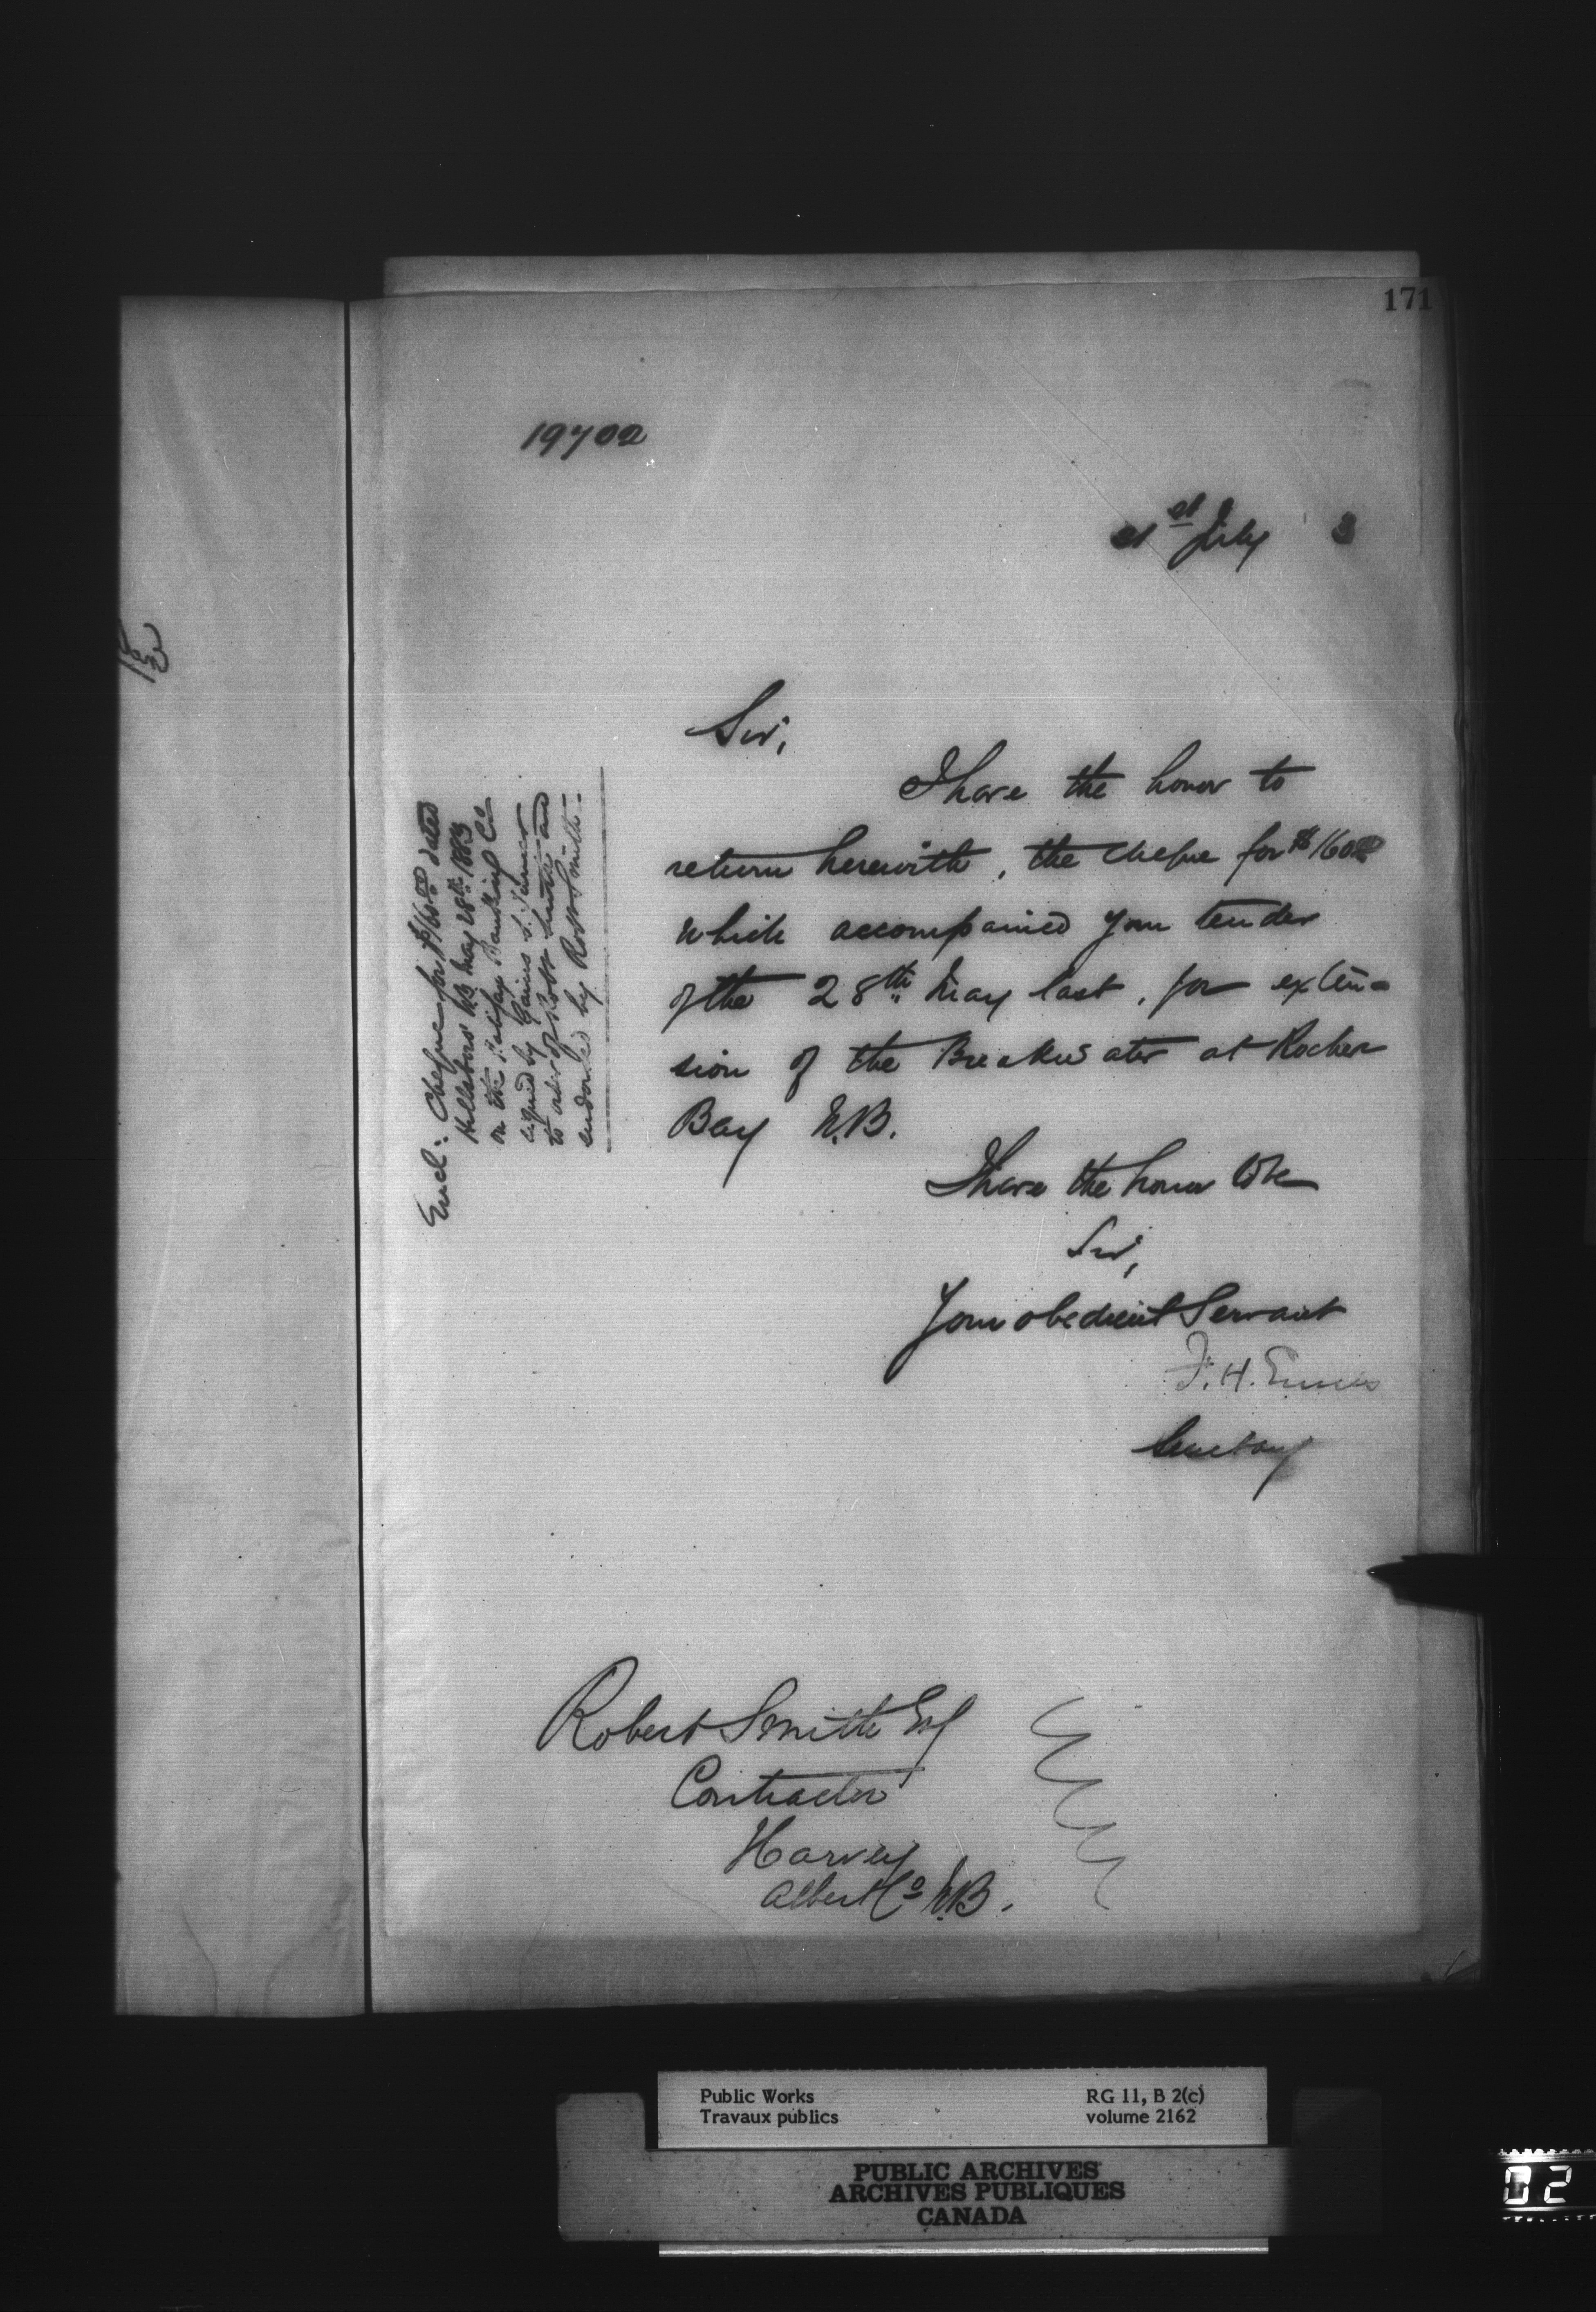 171
19702
21st July 3
Sir,
I have the honor to
return herewith, the cheque for $160.00
which accompanied your tender
of the 28th May last, for exten-
sion of the Breakwater at Rocher
Bay N.B.
I have the honor to be
Sir,
Your obedient Servant
F. H. Ennis
Secretary
Encl: Cheque for $160.00 dated
Hillsboro' NB May 28th 1883
on the Halifax Banking Co
signed by S.
to order of Robt Smith and
endorsed by Robt Smith.
Robert Smith Esq
Contractor
Harvey
Albert Co N.B.
Public Works
Travaux publics
RG 11, B 2(c)
volume 2162
PUBLIC ARCHIVES
ARCHIVES PUBLIQUES
CANADA
02